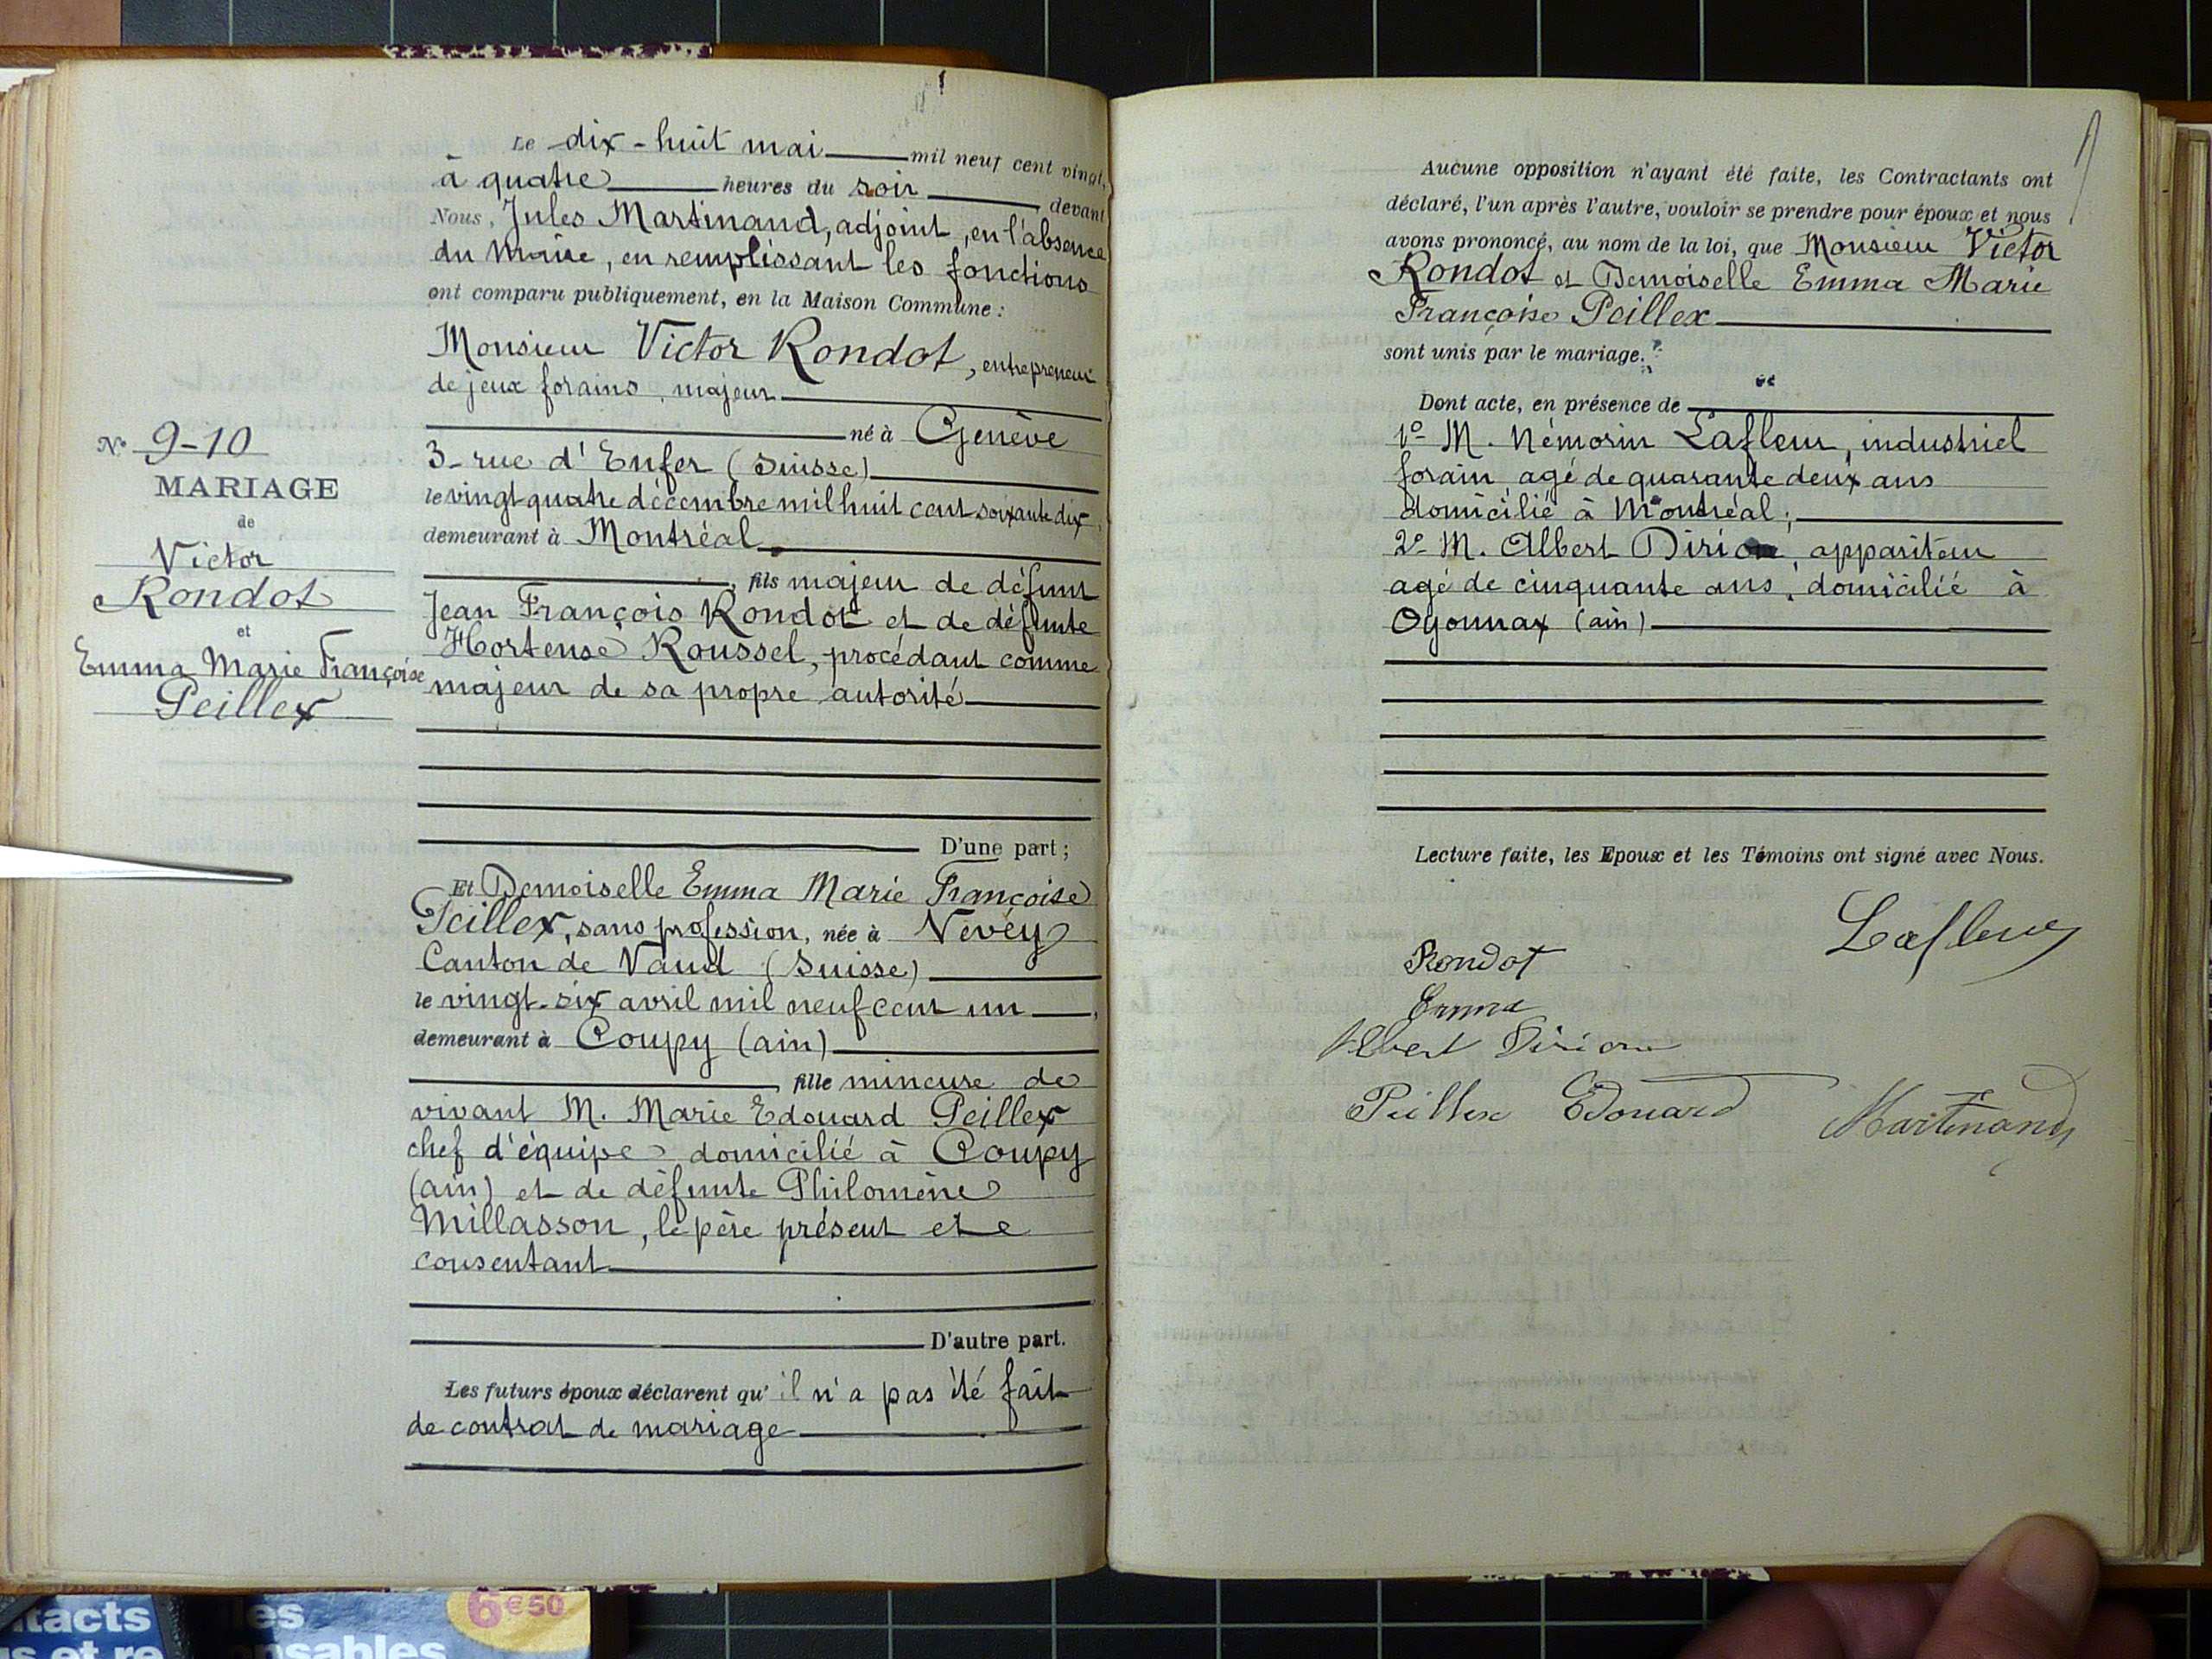 Le dix-huit mai mil neuf cent vingt,
à quatre heures du soir, devant
Nous, Jules Martinand, adjoint, en l'absence
du Maire, en remplissant les fonctions
ont comparu publiquement, en la Maison Commune :
Monsieur Victor Rondot, entrepreneur
de jeux forains, majeur
né à Genève
3 - rue d'Enfer (Suisse)
le vingt quatre décembre mil huit cent soixante dix,
demeurant à Montréal
, fils majeur de défunt
Jean François Rondot et de défunte
Hortense Roussel, procédant comme
majeur de sa propre autorité
D'une part ;
Et Demoiselle Emma Marie Françoise
Peillex, sans profession, née à Vevey
Canton de Vaud (Suisse)
le vingt-six avril mil neuf cent un,
demeurant à Coupy (ain)
, fille mineure de
vivant M. Marie Edouard Peillex
chef d'équipe domicilié à Coupy
(ain) et de défunte Philomène
Millasson, le père présent et
consentant
D'autre part.
Les futurs époux déclarent qu'il n'a pas été fait
de contrat de mariage
N° 9-10
MARIAGE
de
Victor
Rondot
et
Emma Marie Françoise
Peillex
Aucune opposition n'ayant été faite, les Contractants ont
déclaré, l'un après l'autre, vouloir se prendre pour époux et nous
avons prononcé, au nom de la loi, que Monsieur Victor
Rondot et Demoiselle Emma Marie
Françoise Peillex
sont unis par le mariage.
Dont acte, en présence de
1° M. Némorin Lafleur, industriel
forain, agé de quarante deux ans
domicilié à Montréal ;
2° M. Albert Dirion, appariteur
agé de cinquante ans, domicilié à
Oyonnax (ain)
Lecture faite, les Epoux et les Témoins ont signé avec Nous.
Lafleur
Rondot
Emma
Albert Dirion
Peillex Edouard
Martinand
tacts
s et re
les
nsables
6€50